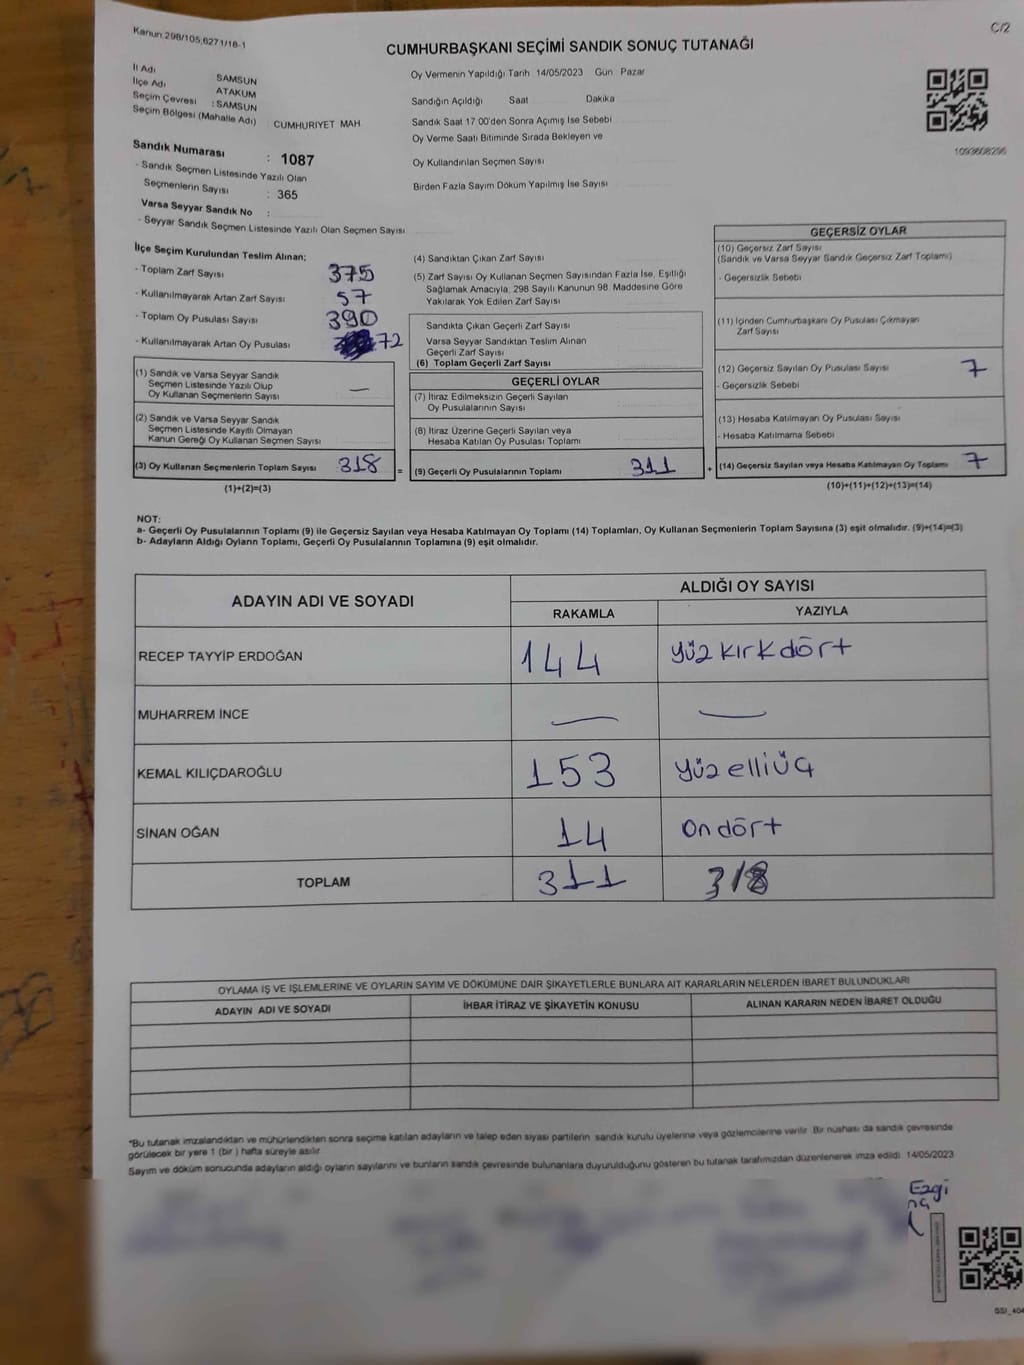 Kanun 298/105,6271/18-1
C/2
CUMHURBAŞKANI SEÇİMİ SANDIK SONUÇ TUTANAĞI
İl Adı SAMSUN
İlçe Adı ATAKUM
Seçim Çevresi : SAMSUN
Seçim Bölgesi (Mahalle Adı) CUMHURIYET MAH.
Sandık Numarası : 1087
- Sandık Seçmen Listesinde Yazılı Olan
Seçmenlerin Sayısı : 365
Varsa Seyyar Sandık No :
- Seyyar Sandık Seçmen Listesinde Yazılı Olan Seçmen Sayısı
Oy Vermenin Yapıldığı Tarih 14/05/2023 Gün Pazar
Sandığın Açıldığı Saat Dakika
Sandık Saat 17 00'den Sonra Açımış İse Sebebi
Oy Verme Saati Bitiminde Sırada Bekleyen ve
Oy Kullandırılan Seçmen Sayısı
Birden Fazla Sayım Döküm Yapılmış İse Sayısı
1093608296
İlçe Seçim Kurulundan Teslim Alınan;
- Toplam Zarf Sayısı 375
- Kullanılmayarak Artan Zarf Sayısı 57
- Toplam Oy Pusulası Sayısı 390
- Kullanılmayarak Artan Oy Pusulası 72
(1) Sandık ve Varsa Seyyar Sandık
Seçmen Listesinde Yazılı Olup
Oy Kullanan Seçmenlerin Sayısı —
(2) Sandık ve Varsa Seyyar Sandık
Seçmen Listesinde Kayıtlı Olmayan
Kanun Gereği Oy Kullanan Seçmen Sayısı
(3) Oy Kullanan Seçmenlerin Toplam Sayısı 318 =
(1)+(2)=(3)
(4) Sandıktan Çıkan Zarf Sayısı
(5) Zarf Sayısı Oy Kullanan Seçmen Sayısından Fazla İse, Eşitliği
Sağlamak Amacıyla, 298 Sayılı Kanunun 98. Maddesine Göre
Yakılarak Yok Edilen Zarf Sayısı
Sandıkta Çıkan Geçerli Zarf Sayısı
Varsa Seyyar Sandıktan Teslim Alınan
Geçerli Zarf Sayısı
(6) Toplam Geçerli Zarf Sayısı
GEÇERLİ OYLAR
(7) İtiraz Edilmeksizin Geçerli Sayılan
Oy Pusulalarının Sayısı
(8) İtiraz Üzerine Geçerli Sayılan veya
Hesaba Katılan Oy Pusulası Toplamı
(9) Geçerli Oy Pusulalarının Toplamı 311 +
GEÇERSİZ OYLAR
(10) Geçersiz Zarf Sayısı
(Sandık ve Varsa Seyyar Sandık Geçersiz Zarf Toplamı)
- Geçersizlik Sebebi
(11) İçinden Cumhurbaşkanı Oy Pusulası Çıkmayan
Zarf Sayısı
(12) Geçersiz Sayılan Oy Pusulası Sayısı 7
- Geçersizlik Sebebi
(13) Hesaba Katılmayan Oy Pusulası Sayısı
- Hesaba Katılmama Sebebi
(14) Geçersiz Sayılan veya Hesaba Katılmayan Oy Toplamı 7
(10)+(11)+(12)+(13)=(14)
NOT:
a- Geçerli Oy Pusulalarının Toplamı (9) ile Geçersiz Sayılan veya Hesaba Katılmayan Oy Toplamı (14) Toplamları, Oy Kullanan Seçmenlerin Toplam Sayısına (3) eşit olmalıdır. (9)+(14)=(3)
b- Adayların Aldığı Oyların Toplamı, Geçerli Oy Pusulalarının Toplamına (9) eşit olmalıdır.
ADAYIN ADI VE SOYADI
ALDIĞI OY SAYISI
RAKAMLA YAZIYLA
RECEP TAYYİP ERDOĞAN 144 yüz kırk dört
MUHARREM İNCE — —
KEMAL KILIÇDAROĞLU 153 yüz elli üç
SİNAN OĞAN 14 on dört
TOPLAM 311 318
OYLAMA İŞ VE İŞLEMLERİNE VE OYLARIN SAYIM VE DÖKÜMÜNE DAİR ŞİKAYETLERLE BUNLARA AİT KARARLARIN NELERDEN İBARET BULUNDUKLARI
ADAYIN ADI VE SOYADI İHBAR İTİRAZ VE ŞİKAYETİN KONUSU ALINAN KARARIN NEDEN İBARET OLDUĞU
*Bu tutanak imzalandıktan ve mühürlendikten sonra seçime katılan adayların ve talep eden siyasi partilerin sandık kurulu üyelerine veya gözlemcilerine verilir. Bir nüshası da sandık çevresinde
görülecek bir yere 1 (bir ) hafta süreyle asılır
Sayım ve döküm sonucunda adayların aldığı oyların sayılarını ve bunların sandık çevresinde bulunanlara duyurulduğunu gösteren bu tutanak tarafımızdan düzenlenerek imza edildi. 14/05/2023
Ezgi